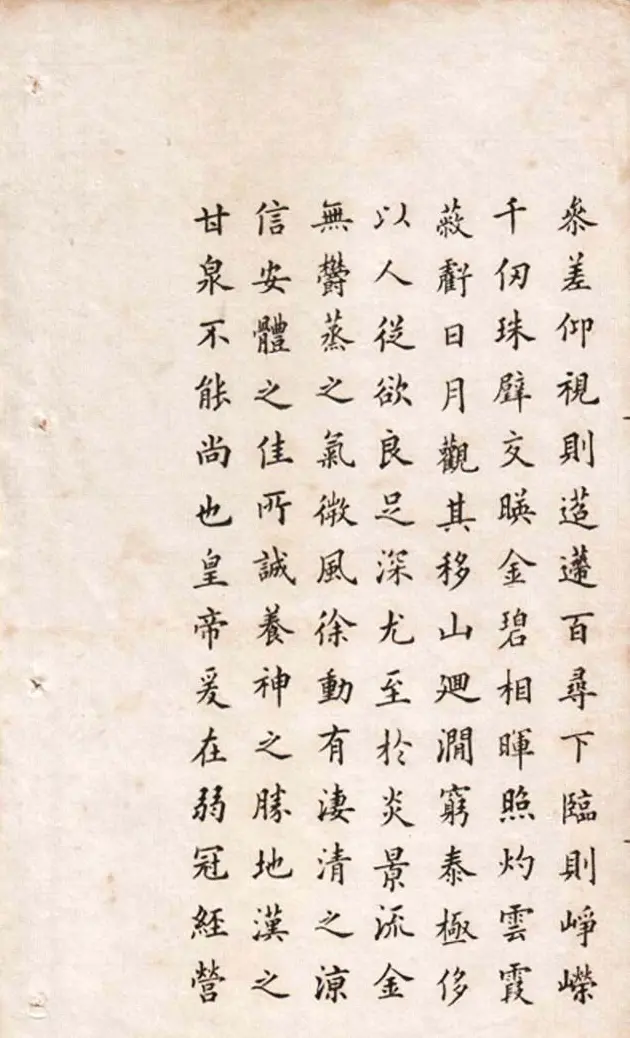 參差仰視則迢遰百尋下臨則崢嶸
千仞珠壁交暎金碧相暉照灼雲霞
蔽虧日月觀其移山廻澗窮泰極侈
以人從欲良足深尤至於炎景流金
無鬱蒸之氣微風徐動有淒清之涼
信安體之佳所誠養神之勝地漢之
甘泉不能尚也皇帝爰在弱冠經營